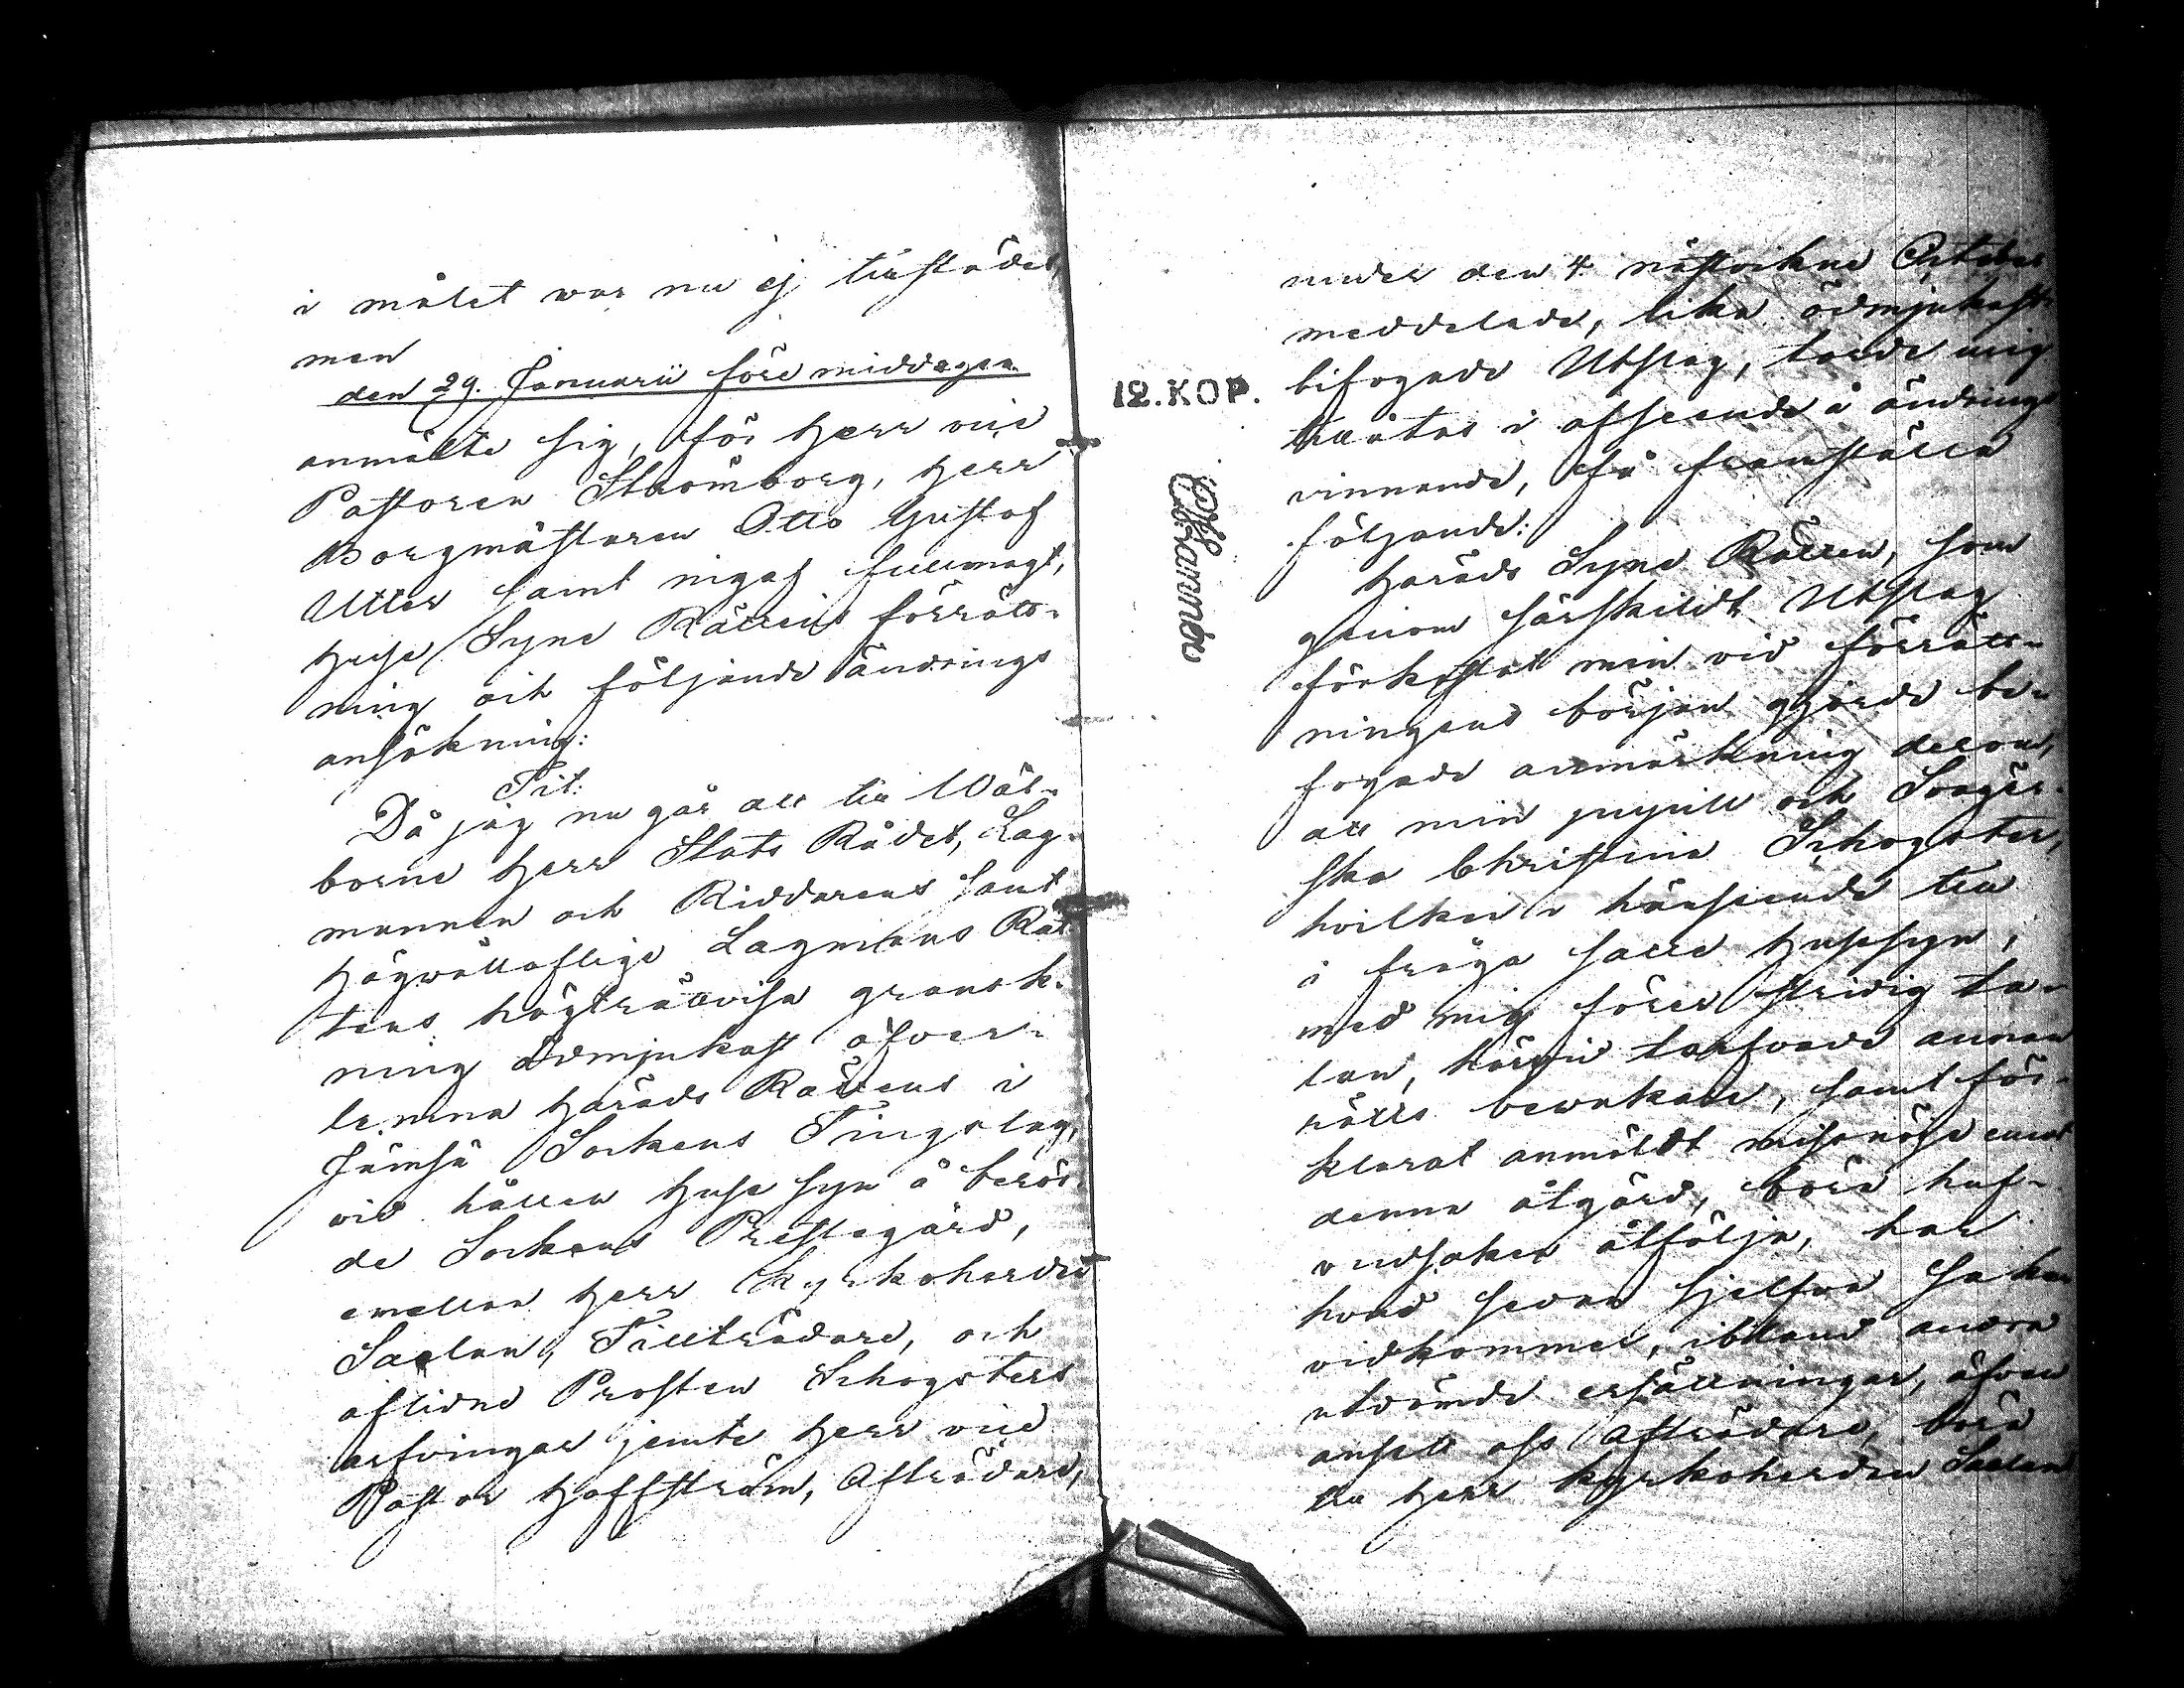 i målet war nu ej tillstädes,
men
den 29. Januarii före middagen
anmälte sig, för Herr vice
Pastoren Strömborg, Herr
Borgmästaren Otto Gustaf
Utter samt ingaf fullmagt,
Huse Syne Rättens förrätt-
ning och följande ändrings
ansökning:
Tit:
Då jag nu går att till Wäl-
borne Herr Stats Rådet, Lag-
mannen och Riddarens samt
Högwällofliga Lagmans Rät-
tens högträttvisa gransk-
ning ödmjukast öfver-
lemna Härads Rättens i
Jämsä Sockens Tingslag,
vid hållen Huse syn å berör-
de Sockens Prestegård,
emellan Herr Kyrkoherden
Saelan, Tillträdare, och
aflidne Prosten Schogsters
arfvingar jemte Herr vice
Pastor Hoffström, Afträdare,
under den 4 nästvikne October
meddelade, lika ödmjukast
bifogade Utslag, torde mig
tillåtas i afseende å ändrings
vinnande, få framställa
följande:
Härads Syne Rätten, som
genom särskildt Utslag
förkastat min vid förrätt-
ningens början gjorde be-
fogade anmärkning derom,
att min pupill och Sväger-
ska Christina Schogster,
hvilken i hänseende till
i fråga satte Husesyn,
med mig förer stridig ta-
lan, härvid tarfvade annan
rätts bevakare, samt för-
klarat anmäldt missnöje emot
denna åtgärd, böra huf-
vudsaken åtfölja, har
hvad sedan sjelfva saken
vidkommer, ibland andra
utdömde ersättningar, äfven
ansett oss Afträdare, böra
till Herr Kyrkoherden Saelan
12. KOP.